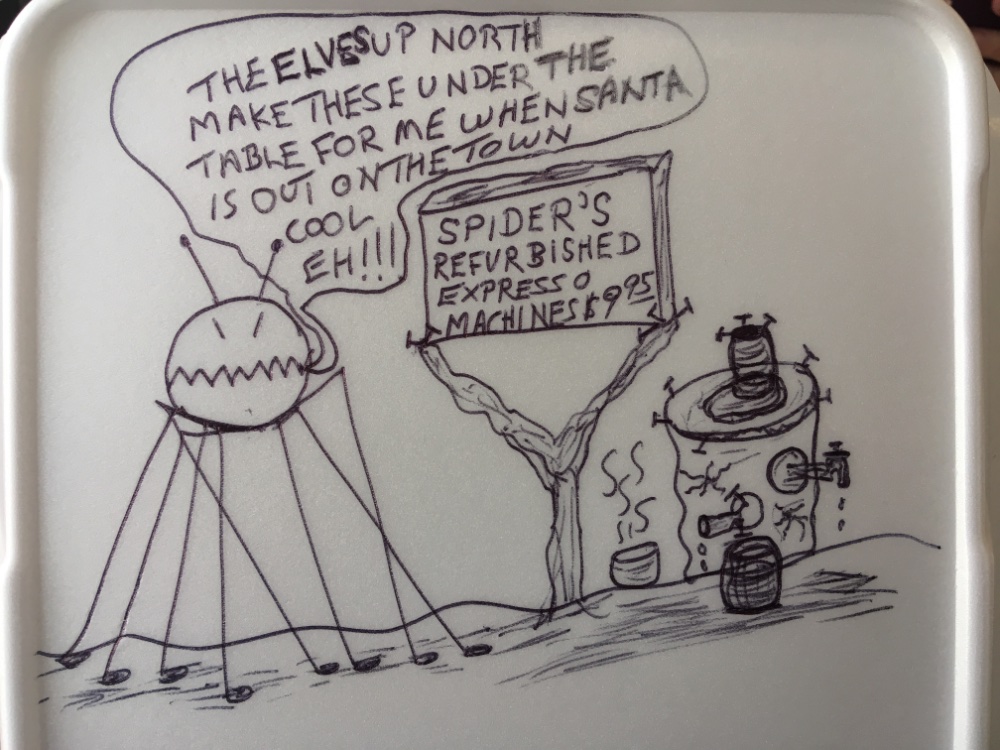 THE ELVES UP NORTH
MAKE THESE UNDER THE
TABLE FOR ME WHEN SANTA
IS OUT ON THE TOWN
COOL
EH!!!
SPIDER'S
REFURBISHED
EXPRESSO
MACHINES $9.95